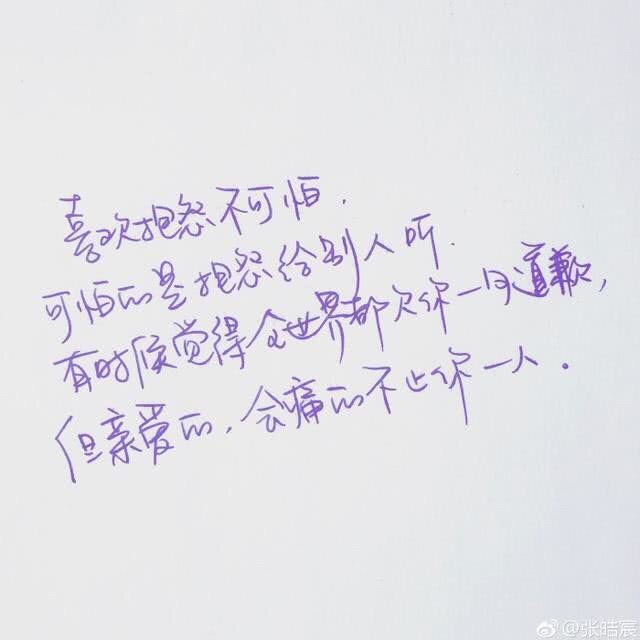 喜欢抱怨不可怕.
可怕的是抱怨给别人听.
有时候觉得全世界都欠你一句道歉,
但亲爱的,会痛的不止你一人.
@张皓宸